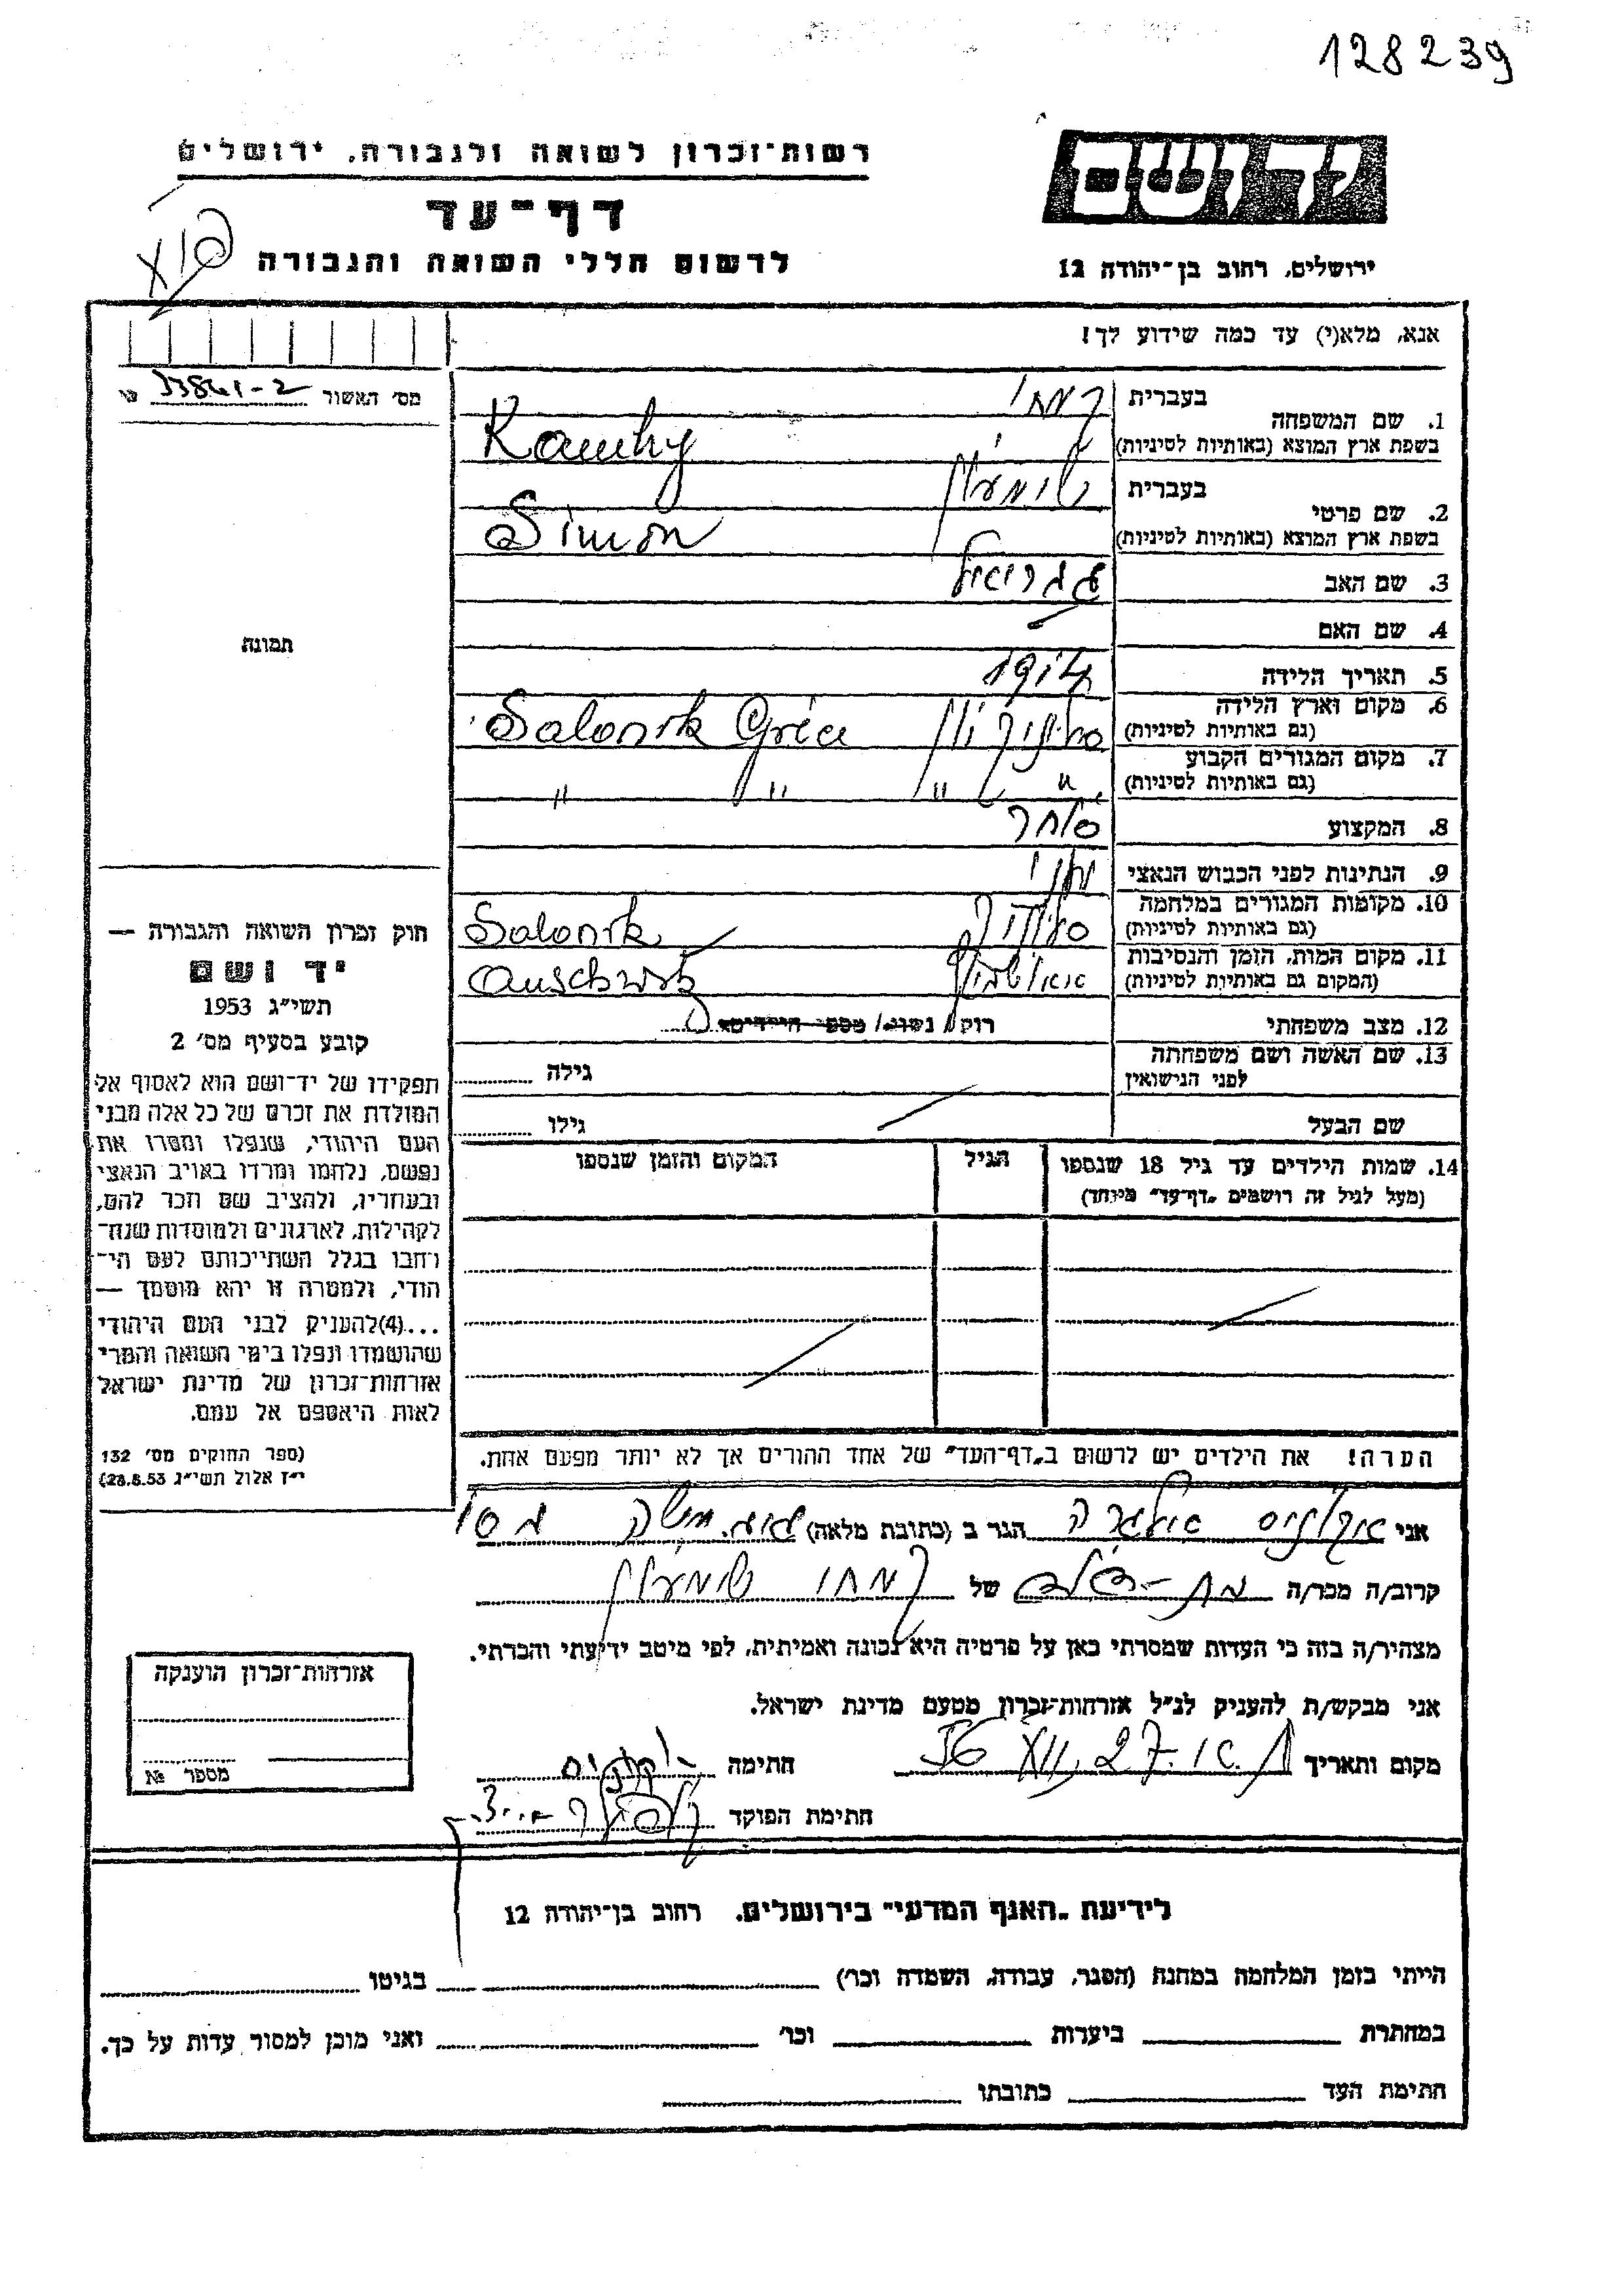 128239
רשות־זכרון לשואה ולגבורה, ירושלים
יד ושם
דף־עד
לרשום חללי השואה והגבורה
ירושלים, רחוב בן־יהודה 12
אנא, מלא(י) עד כמה שידוע לך!
מס׳ האשור
1. שם המשפחה
בעברית קמחי
בשפת ארץ המוצא (באותיות לטיניות) Kamhy
2. שם פרטי
בעברית שימעון
בשפת ארץ המוצא (באותיות לטיניות) Simon
3. שם האב גבריאל
4. שם האם
5. תאריך הלידה 1914
6. מקום וארץ הלידה
(גם באותיות לטיניות) סלוניק יון Salonik Gréce
7. מקום המגורים הקבוע
(גם באותיות לטיניות) " " " "
8. המקצוע סוחר
9. הנתינות לפני הכבוש הנאצי יוני
10. מקומות המגורים במלחמה
(גם באותיות לטיניות) סלוניק Salonik
11. מקום המות, הזמן והנסיבות
(המקום גם באותיות לטיניות) Auschwitz
12. מצב משפחתי רוק/ נשוי/ מספר הילדים
13. שם האשה ושם משפחתה
לפני הנישואין גילה
שם הבעל גילו
14. שמות הילדים עד גיל 18 שנספו הגיל המקום והזמן שנספו
(מעל לגיל זה רושמים „דף־עד” מיוחד)
הערה! את הילדים יש לרשום ב„דף־העד” של אחד ההורים אך לא יותר מפעם אחת.
תמונה
חוק זכרון השואה והגבורה —
יד ושם
תשי״ג 1953
קובע בסעיף מס׳ 2
תפקידו של יד־ושם הוא לאסוף אל
המולדת את זכרם של כל אלה מבני
העם היהודי, שנפלו ומסרו את
נפשם, נלחמו ומרדו באויב הנאצי
ובעוזריו, ולהציב שם וזכר להם,
לקהילות, לארגונים ולמוסדות שנח־
רבו בגלל השתייכותם לעם הי־
הודי, ולמטרה זו יהא מוסמך —
...(4)להעניק לבני העם היהודי
שהושמדו ונפלו בימי השואה והמרי
אזרחות־זכרון של מדינת ישראל
לאות היאספם אל עמם.
(ספר החוקים מס׳ 132
י״ז אלול תשי״ג 28.8.53)
אני הגר ב (כתובת מלאה)
קרוב/ה מכר/ה של קמחי שימעון
מצהיר/ה בזה כי העדות שמסרתי כאן על פרטיה היא נכונה ואמיתית, לפי מיטב ידיעתי והכרתי.
אני מבקש/ת להעניק לנ״ל אזרחות־זכרון מטעם מדינת ישראל.
מקום ותאריך 27. XII. 56 חתימה
חתימת הפוקד
אזרחות־זכרון הוענקה
מספר №
לידיעת „האגף המדעי” בירושלים, רחוב בן־יהודה 12
הייתי בזמן המלחמה במחנה (הסגר, עבודה, השמדה וכו׳) בגיטו
במחתרת ביערות וכו׳ ואני מוכן למסור עדות על כך.
חתימת העד כתובתו